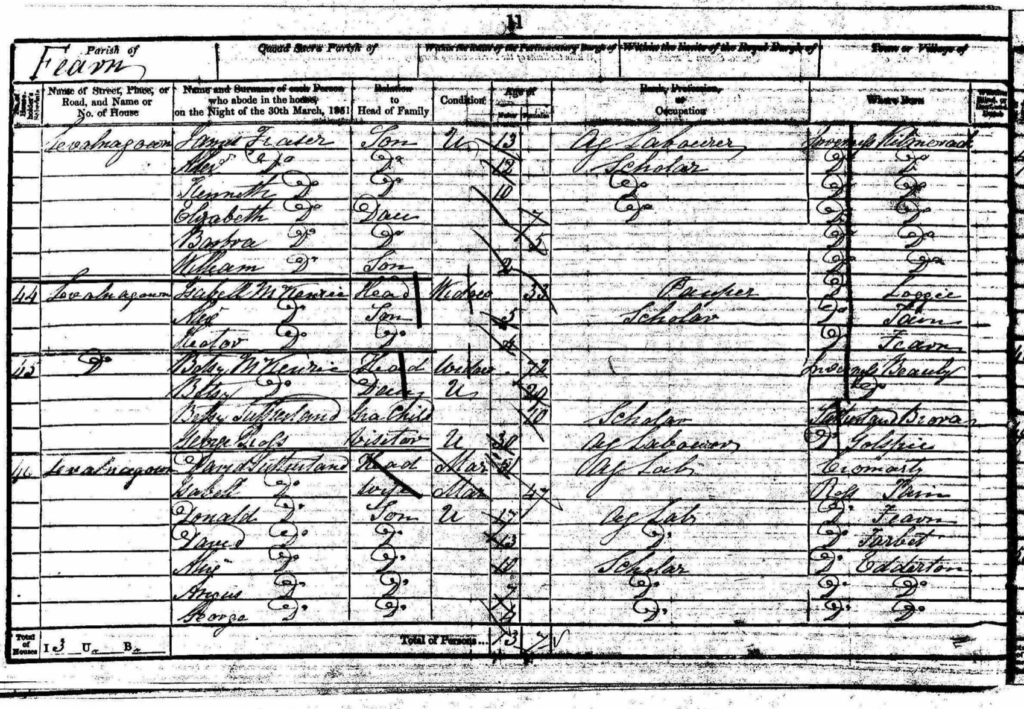 11
Parish of Quoad Sacra Parish of Within the Limits of the Parliamentary Burgh of Within the Limits of the Royal Burgh of Town or Village of
Fearn
Name of Street, Place, or Road, and Name or No. of House Name and Surname of each Person who abode in the house, on the Night of the 30th March, 1851 Relation to Head of Family Condition Age of Males Females Rank, Profession, or Occupation Where Born
Fraser Son U 13 Ag Labourer Inverness Kilmorack
Alexr Do Do 12 Scholar Do Do
Kenneth Do Do 10 Do Do Do
Elizabeth Do Daur 7 Do Do Do
Barbra Do Do 5 Do Do
William Do Son 2 Do Do
44 Isabell McKenzie Head Widow 33 Pauper Do Loggie
Alexr Son 5 Scholar Do Tain
Do 4 Do Fearn
45 Do Betsy McKenzie Head Widow 72 Inverness Beauly
Betsy Do Daur U 29 Do
Betsy Sutherland Gra Child 10 Scholar Sutherland Brora
George Ross Visitor U 30 Ag Labourer Do Golspie
46 David Sutherland Head Mar Ag Lab Cromarty
Isabell Do Wife Mar 47 Ross Tain
Donald Do Son U 17 Ag Lab Do Fearn
David Do Do 13 Do Do Tarbet
Alexr Do Do 10 Scholar Do Edderton
Angus Do Do 7 Do Do Do
George Do Do 4 Do Do Do
Total of Houses I 3 U B Total of Persons... 13 7